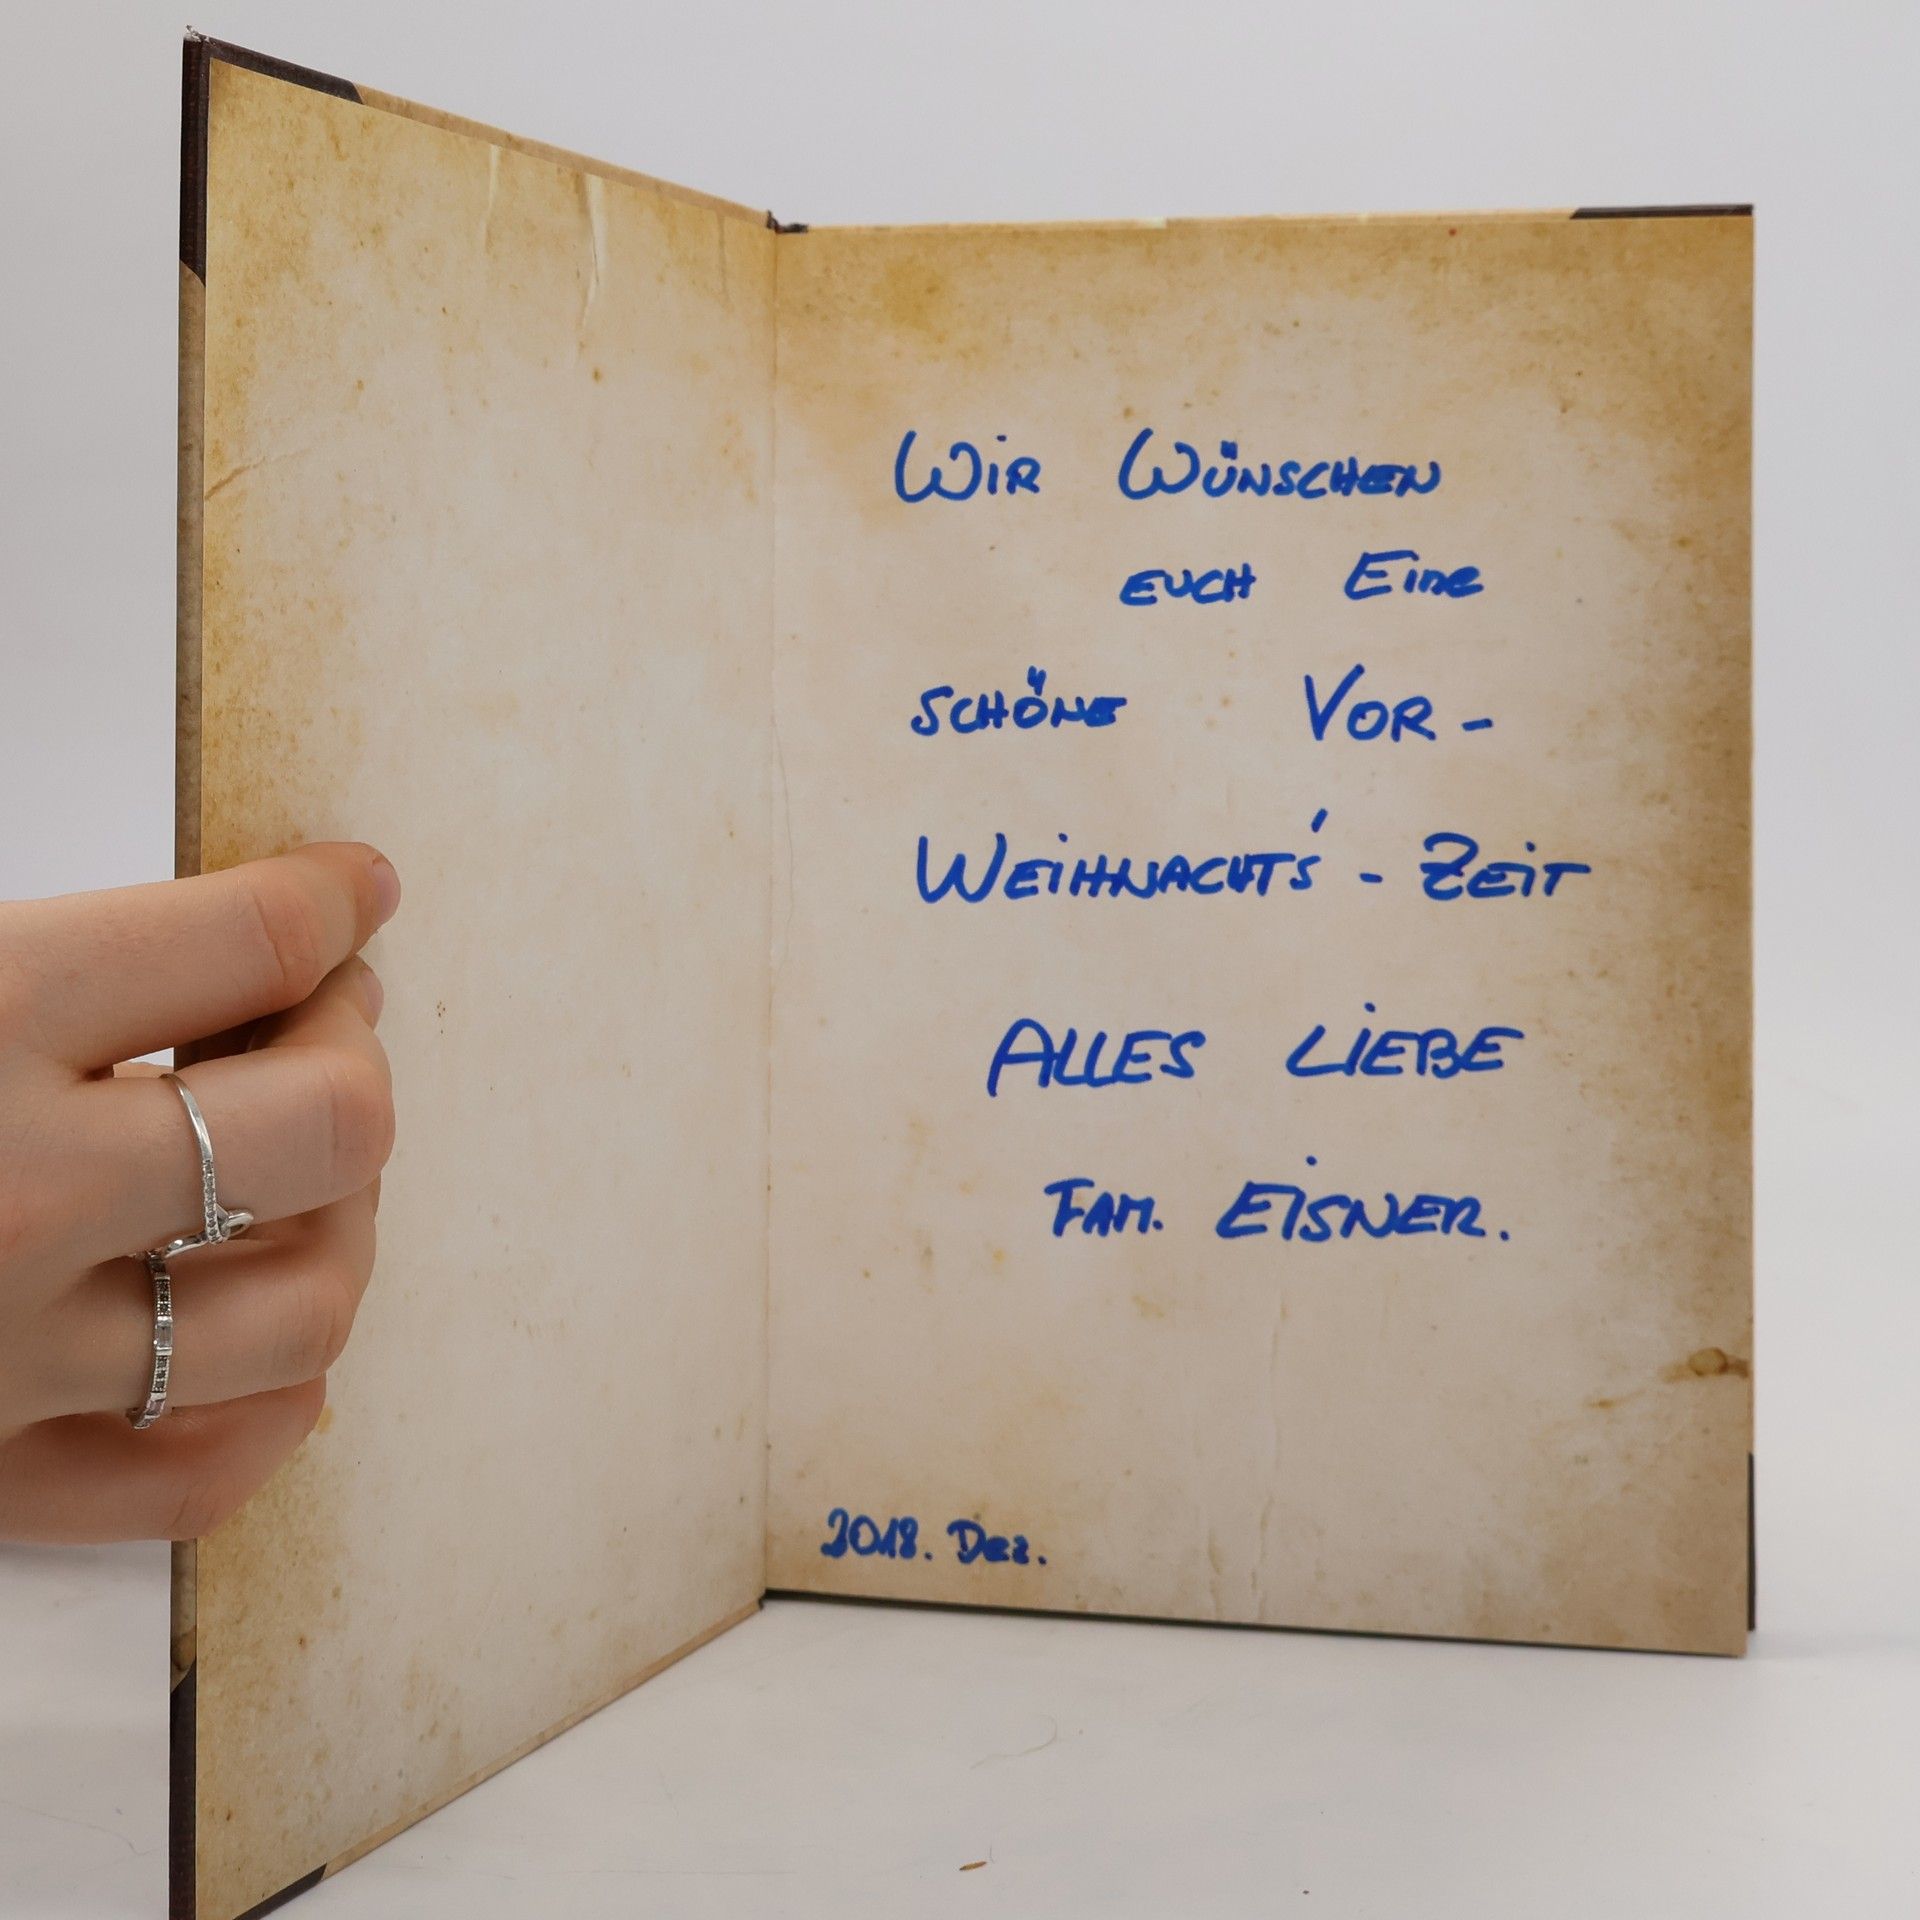 Wir Wünschen
euch Eine
schöne Vor-
Weihnacht's - Zeit
Alles Liebe
Fam. Eisner.
2018. Dez.